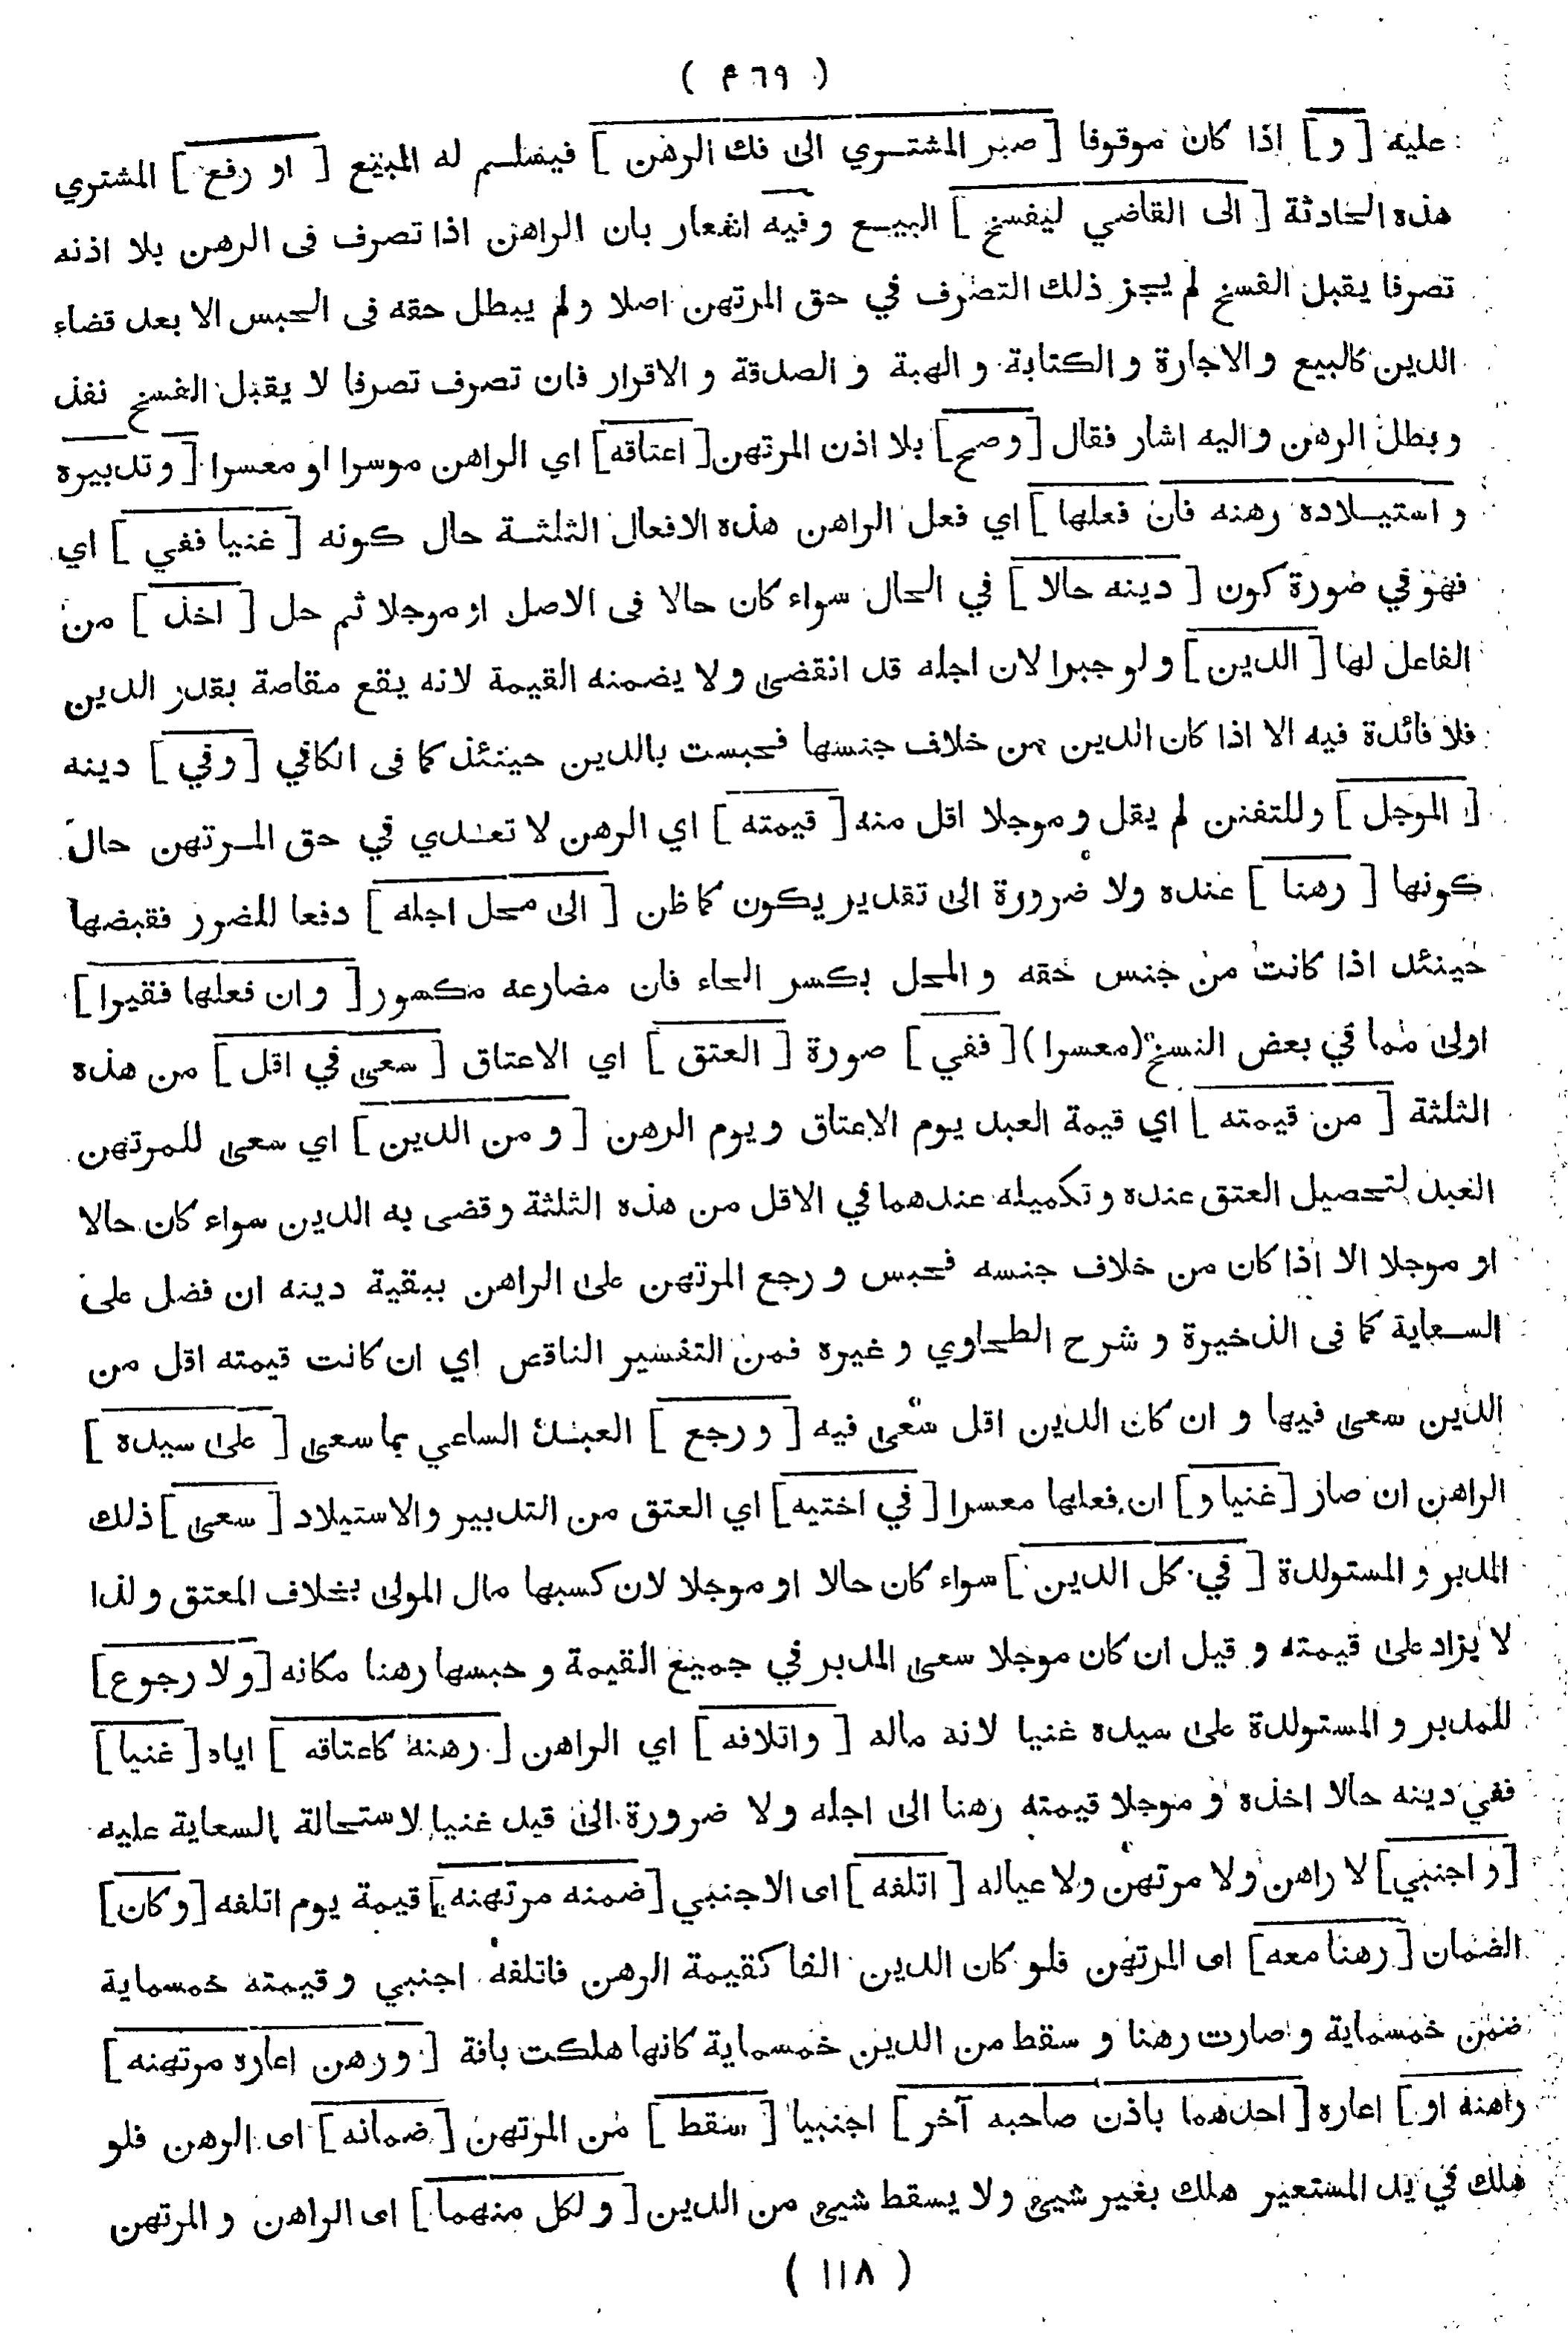 ( ۴٦٩ )
عليه [ و ] اذا كان موقوفا [ صبر المشتري الى فك الرهن ] فيسلم له المبيع [ او رفع ] المشتري
هذه الحادثة [ الى القاضي ليفسخ ] البيع وفيه اشعار بان الراهن اذا تصرف فى الرهن بلا اذنه
تصرفا يقبل الفسخ لم يجز ذلك التصرف في حق المرتهن اصلا ولم يبطل حقه فى الحبس الا بعد قضاء
الدين كالبيع والاجارة والكتابة والهبة و الصدقة و الاقرار فان تصرف تصرفا لا يقبل الفسخ نفذ
وبطل الرهن واليه اشار فقال [ وصح ] بلا اذن المرتهن [ اعتاقه ] اي الراهن موسرا او معسرا [ وتدبيره
و استيلاده رهنه فان فعلها ] اي فعل الراهن هذه الافعال الثلثة حال كونه [ غنيا ففي ] اي
فهو في صورة كون [ دينه حالا ] في الحال سواء كان حالا فى الاصل او موجلا ثم حل [ اخذ ] من
الفاعل لها [ الدين ] ولو جبرا لان اجله قد انقضى ولا يضمنه القيمة لانه يقع مقاصة بقدر الدين
فلا فائدة فيه الا اذا كان الدين من خلاف جنسها فحبست بالدين حينئذ كما فى الكافي [ وفي ] دينه
[ الموجل ] وللتفنن لم يقل وموجلا اقل منه [ قيمته ] اي الرهن لا تعدي في حق المرتهن حال
كونها [ رهنا ] عنده ولا ضرورة الى تقدير يكون كما ظن [ الى محل اجله ] دفعا للضرر فقبضها
حينئذ اذا كانت من جنس حقه و المحل بكسر الحاء فان مضارعه مكسور [ وان فعلها فقيرا ]
اولى مما في بعض النسخ (معسرا) [ ففي ] صورة [ العتق ] اي الاعتاق [ سعى في اقل ] من هذه
الثلثة [ من قيمته ] اي قيمة العبد يوم الاعتاق ويوم الرهن [ و من الدين ] اي سعى للمرتهن
العبد لتحصيل العتق عنده وتكميله عندهما في الاقل من هذه الثلثة وقضى به الدين سواء كان حالا
او موجلا الا اذا كان من خلاف جنسه فحبس و رجع المرتهن على الراهن ببقية دينه ان فضل على
السعاية كما فى الذخيرة و شرح الطحاوي وغيره فمن التفسير الناقص اي ان كانت قيمته اقل من
الدين سعى فيها و ان كان الدين اقل سعى فيه [ و رجع ] العبد الساعي بما سعى [ على سيده ]
الراهن ان صار [ غنيا و ] ان فعلها معسرا [ في اختيه ] اي العتق من التدبير والاستيلاد [ سعى ] ذلك
المدبر و المستولدة [ في كل الدين ] سواء كان حالا او موجلا لان كسبها مال المولى بخلاف المعتق ولذا
لا يزاد على قيمته و قيل ان كان موجلا سعى المدبر في جميع القيمة و حبسها رهنا مكانه [ ولا رجوع ]
للمدبر و المستولدة على سيده غنيا لانه ماله [ واتلافه ] اي الراهن [ رهنه كاعتاقه ] اياه [ غنيا ]
ففي دينه حالا اخذه و موجلا قيمته رهنا الى اجله ولا ضرورة الى قيد غنيا لاستحالة السعاية عليه
[ و اجنبي ] لا راهن ولا مرتهن ولا عياله [ اتلفه ] اى الاجنبي [ ضمنه مرتهنه ] قيمة يوم اتلفه [ وكان ]
الضمان [ رهنا معه ] اى المرتهن فلو كان الدين الفا كقيمة الرهن فاتلفه اجنبي و قيمته خمسماية
ضمن خمسماية و صارت رهنا و سقط من الدين خمسماية كانها هلكت بافة [ و رهن اعاره مرتهنه ]
راهنه او ] اعاره [ احدهما باذن صاحبه آخر ] اجنبيا [ سقط ] من المرتهن [ ضمانه ] اى الرهن فلو
هلك في يد المستعير هلك بغير شيئ ولا يسقط شيئ من الدين [ ولكل منهما ] اى الراهن و المرتهن
( ١١٨ )